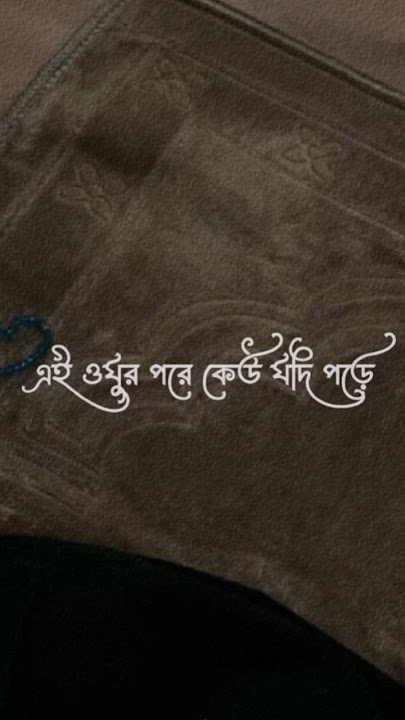 এই ওযুর পরে কেউ যদি পড়ে